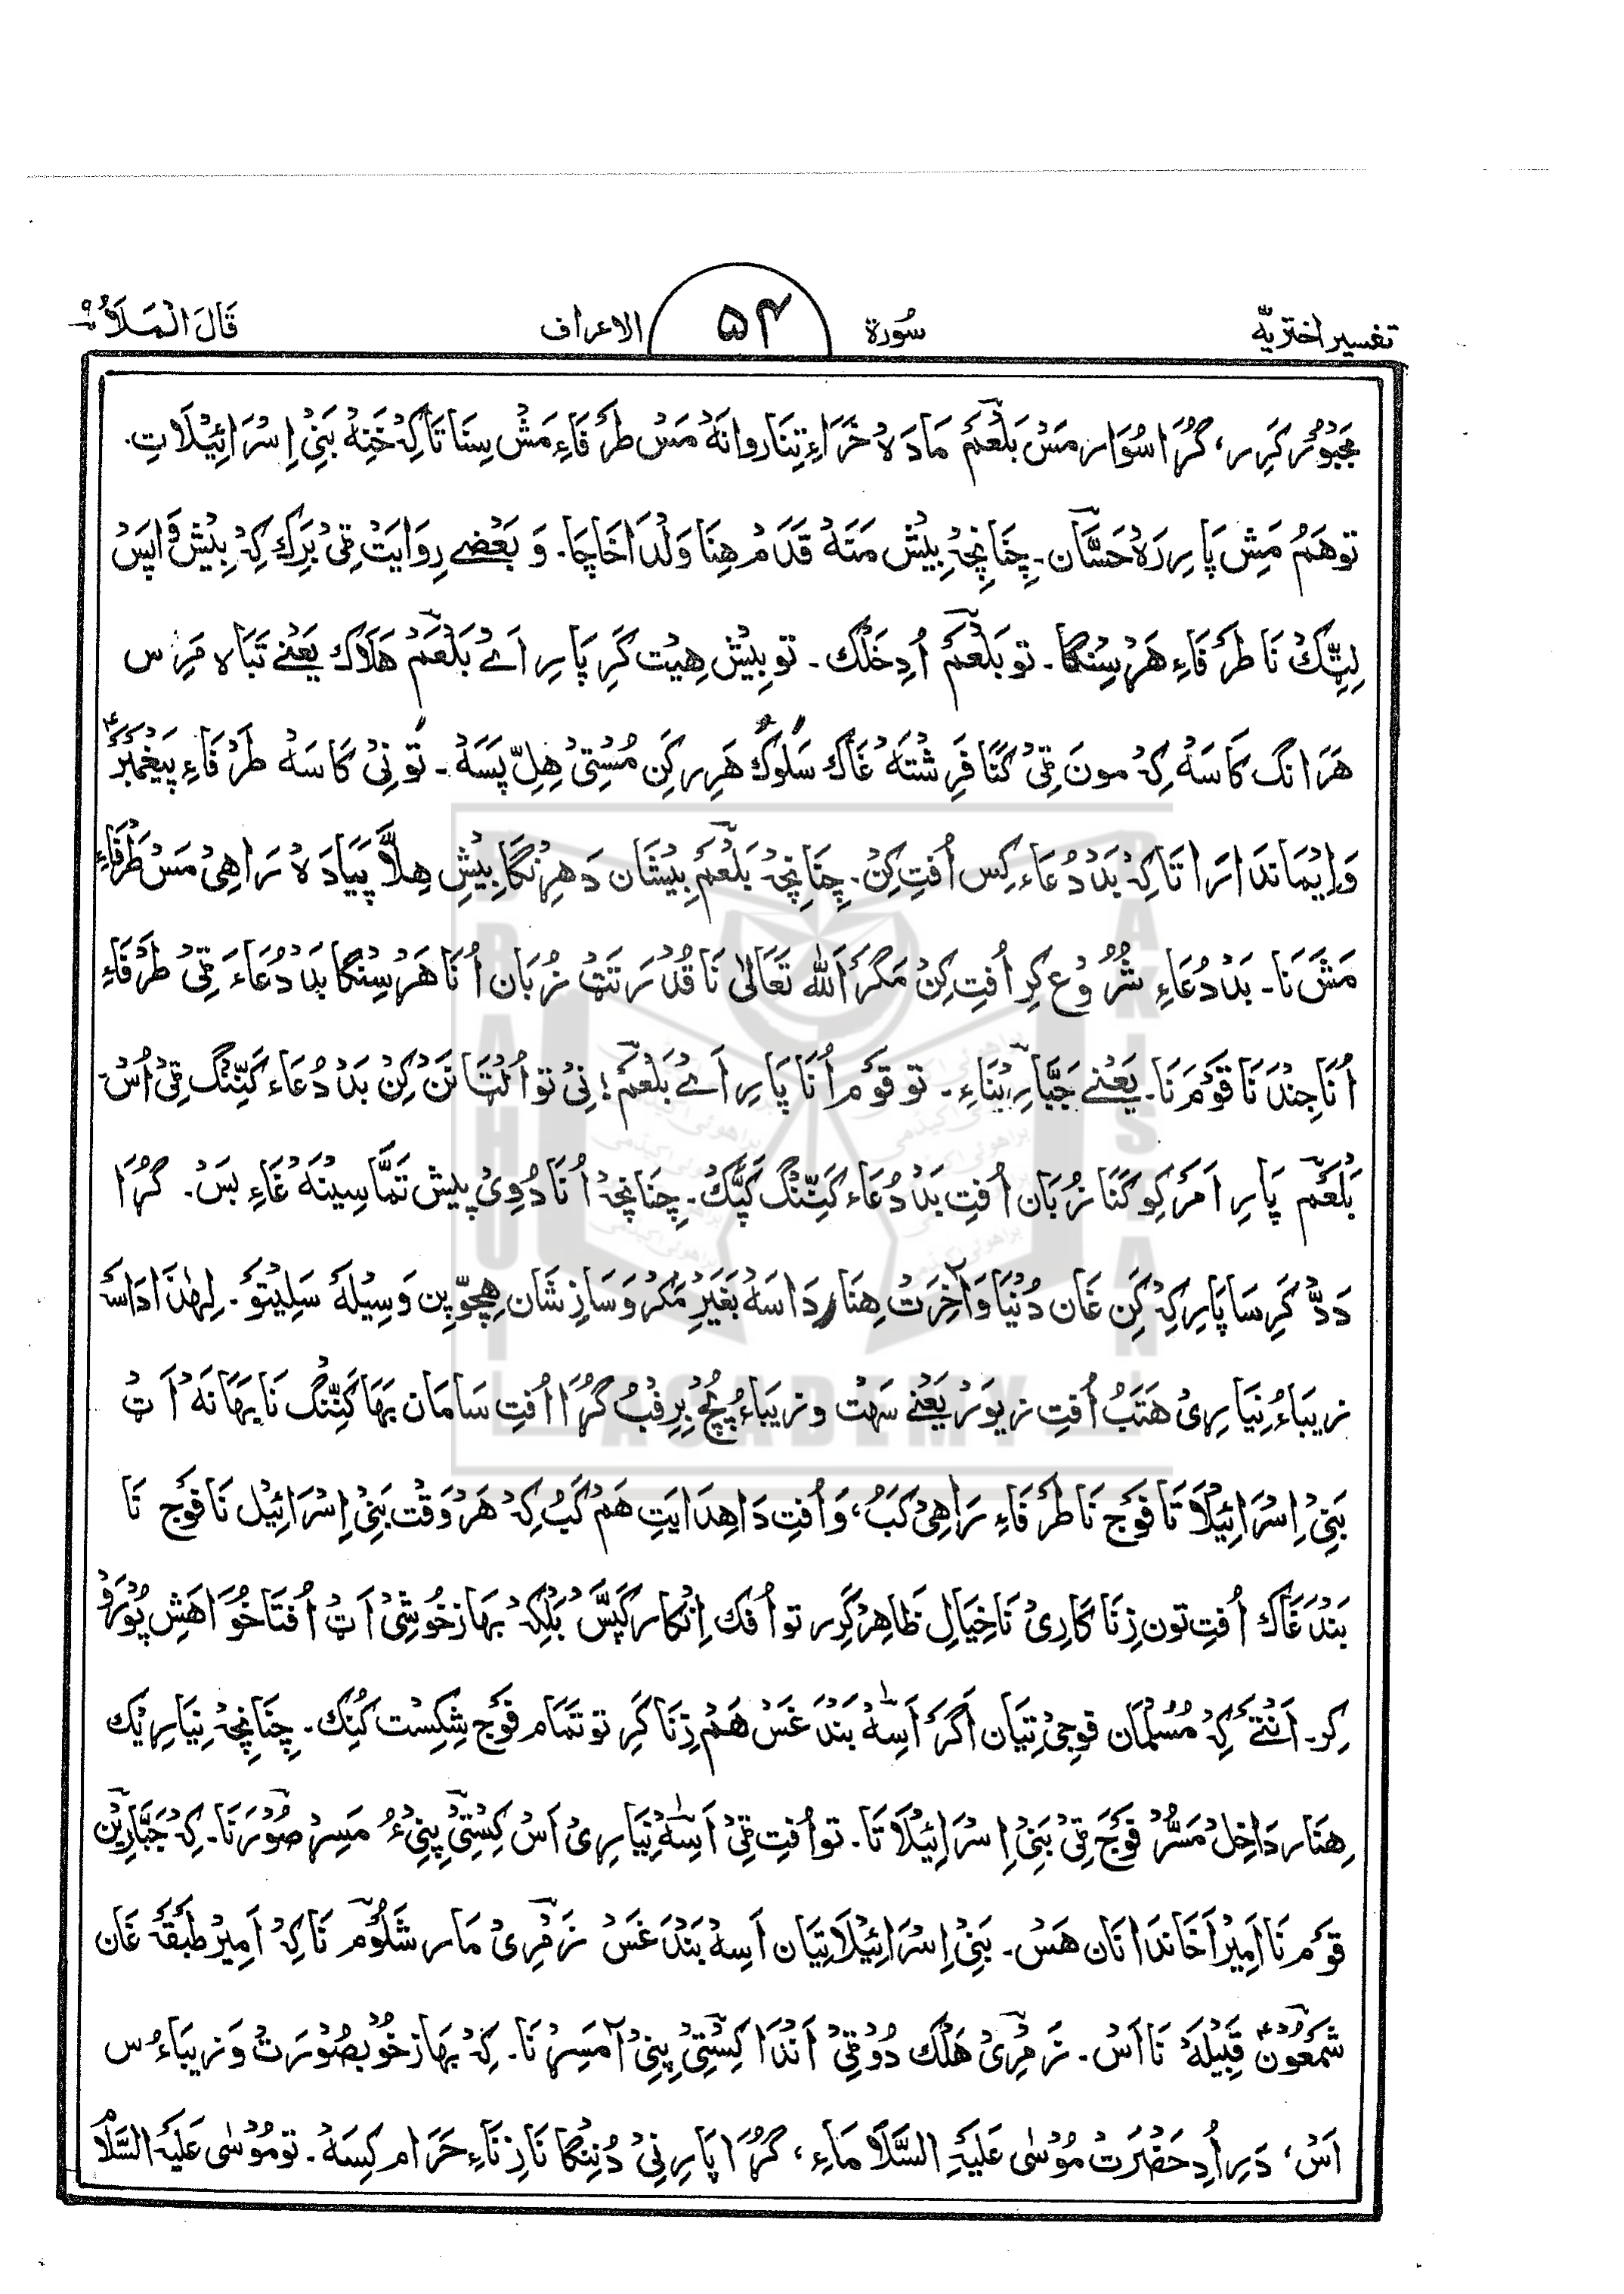 تفسیر اختریه
سُورة ۵۴ الاعراف
قَالَ الْمَلَاُ ۹
مَجبُوْر کَرِر، گُڑَا سُوَار مَسْ بَلْعَمْ مَادَهْ خَرَاءِ تِنَا روانَهْ مَسْ طرَفَاءِ مَشْ سِنَا تَاکِہْ خَنِهْ بَنِیْ اِسْرَائِیْلَاتِ.
توهَمْ مَشِ پَارِرَهْ حَسَّان۔ چِنَانِچِہْ بِیْش مَتَهْ قَدَم هِنَا وَلْدَا خَاچَا۔ وَ بَعْضے رِوَایَتْ ٹِیْ بَرِك کِہْ بِیْش وَاپَسْ
لِیٹِّكْ نَا طرَفَاءِ هَرْسِنْگا۔ تو بَلْعَمْ اُدِ خَلْك۔ تو بِیْش هِیْت کَرِ پَارِ اَےْ بَلْعَمْ هَلَاك یَعْنے تَبَاہ مَرِس
هَرَانگ کَاسَهْ کِہْ مون ٹِیْ کَنَا فَرِشْتَهْ غَاك سَلُوكْ هَرِرکَن مُسْتِیْ هِلّ پَسَهْ۔ تَوْنِیْ کَاسَهْ طَرْفَاءِ پَیْغَمْبَرْ
وَاِیْمَانْدَارَاتَا کِہْ بَدْدُعَاء کِس اُفتِ کِنْ۔ چِنَانِچِہْ بَلْعَمْ بِیْشَان دَهِرْنگَا بِیْشِ هِلَّا پَیَادَهْ رَاهِیْ مَسْ طَرْفَاءِ
مَشَ نَا۔ بَدْدُعَاءِ شُرُوْع کرِ اُفتِ کِنْ مَگَرْ اَللّٰه تَعَالٰی نَا قُدْرَتَتْ زُبَان اُنَا هَرْسِنگا بَدْدُعَاءَ ٹِیْ طَرْفَاءِ
اُنَا جِنْدَ نَا قَوْمَ نَا۔ یَعْنے جَبَّارِیْنَاءِ۔ تو قَوْم اُنَا پَارِ اَےْ بَلْعَمْ! نِیْ تو اُلْٹَا نَنْ کِنْ بَدْدُعَاء کَنِّنْگ ٹِیْ اُسْ
بَلْعَمْ پَارِ اَمَرْ کِو کَنَا زُبَان اُفتِ بَدْدُعَاء کَنِّنْگ کَپَّكْ۔ چِنَانِچِہْ اُنَا دُوِیْ پِیش تَمَّا سِیْنَهْ غَاءِ بَسْ۔ گُڑَا
دَدّْ کَرِسَا پَارِکِہْ کَن غَان دُنْیَا وَ آخِرَتْ هِنَار دَاسَهْ بَغَیْرِ مَکْر وَ سَازِشَان هِچّوِپِن وَسِیْلَهْ سَلِیْتَو۔ لِهٰذَا دَاسَهْ
زیبَاءُ نِیَارِیْ هَتَبْ اُفتِ زیوَرْ یَعْنے سَهْت وزیبَاءُ پُچْ بِرِفْبُ گُڑَا اُفتِ سَامَان بَهَا کَنِّنْگ نَا بَهَانَهْ اَٹْ
بَنِیْ اِسْرَائِیْلَا تَا فَوْج نَا طَرَفَاءِ رَاهِیْ کَبُ، وَ اُفتِ دَا هِدَایَتِ هَمْ کَبُ کِہْ هَرْوَقْت بَنِیْ اِسْرَائِیْل نَا فَوْج نَا
بَنْدَغَاك اُفتِ تون زِنَا کَارِیْ نَا خِیَالِ ظَاهِرْ کَرِر تو اُفك اِنْکَار کَپَسْ بَلْکِہْ بَهَاز خُوشِیْ اَٹْ اُفتَا خُوَاهِشِ پُوْرَو
کِر۔ اَنْتَےْ کِہْ مُسْلمَان فوجِیْ تِیَان اَگَرْ اَسِهْ بَنْدَغَسْ هَمْ زِنَا کَرِ تو تَمَام فَوْج شِکِسْت کُنِك۔ چِنَانِچِہْ نِیَارِیْك
هِنَار دَاخِلْ مَسُّرْ فَوْجَ ٹِیْ بَنِیْ اِسْرَائِیْلَا تَا۔ تو اُفتِ ٹِیْ اَسِهْ نِیَارِیْ اَسْ کِسْتِیْ پِنِیْءُ مَسِرْ صُوْرَ نَا۔ کِہْ جَبَّارِیْن
قَوْم نَا اَمِیْرَا خَانْدَانَان هَسْ۔ بَنِیْ اِسْرَائِیْلَاتِیَان اَسِهْ بَنْدَغَسْ زَمْرِیْ مَار شَلُوْم نَا کِہْ اَمِیْر طَبْقَهْ غَان
شَمْعُوْنْ قَبِیْلَهْ نَا اَسْ۔ زَمْرِیْ هَلْك دُوْ ٹِیْ اَنْدَا کِسْتِیْ پِنِیْ آ مَسِرْ نَا۔ کِہْ بَهَاز خُوبصُوْرَتْ وَ زیبَاءُس
اَسْ، دَرِ اُدِ حَضْرَتْ مُوْسٰی عَلَیْہِ السَّلَامَاءِ، گُڑَا پَارِ نِیْ دُنِنگا نَا زِنَاءِ حَرَام کِسَهْ۔ تو مُوْسٰی عَلَیْہِ السَّلَامْ